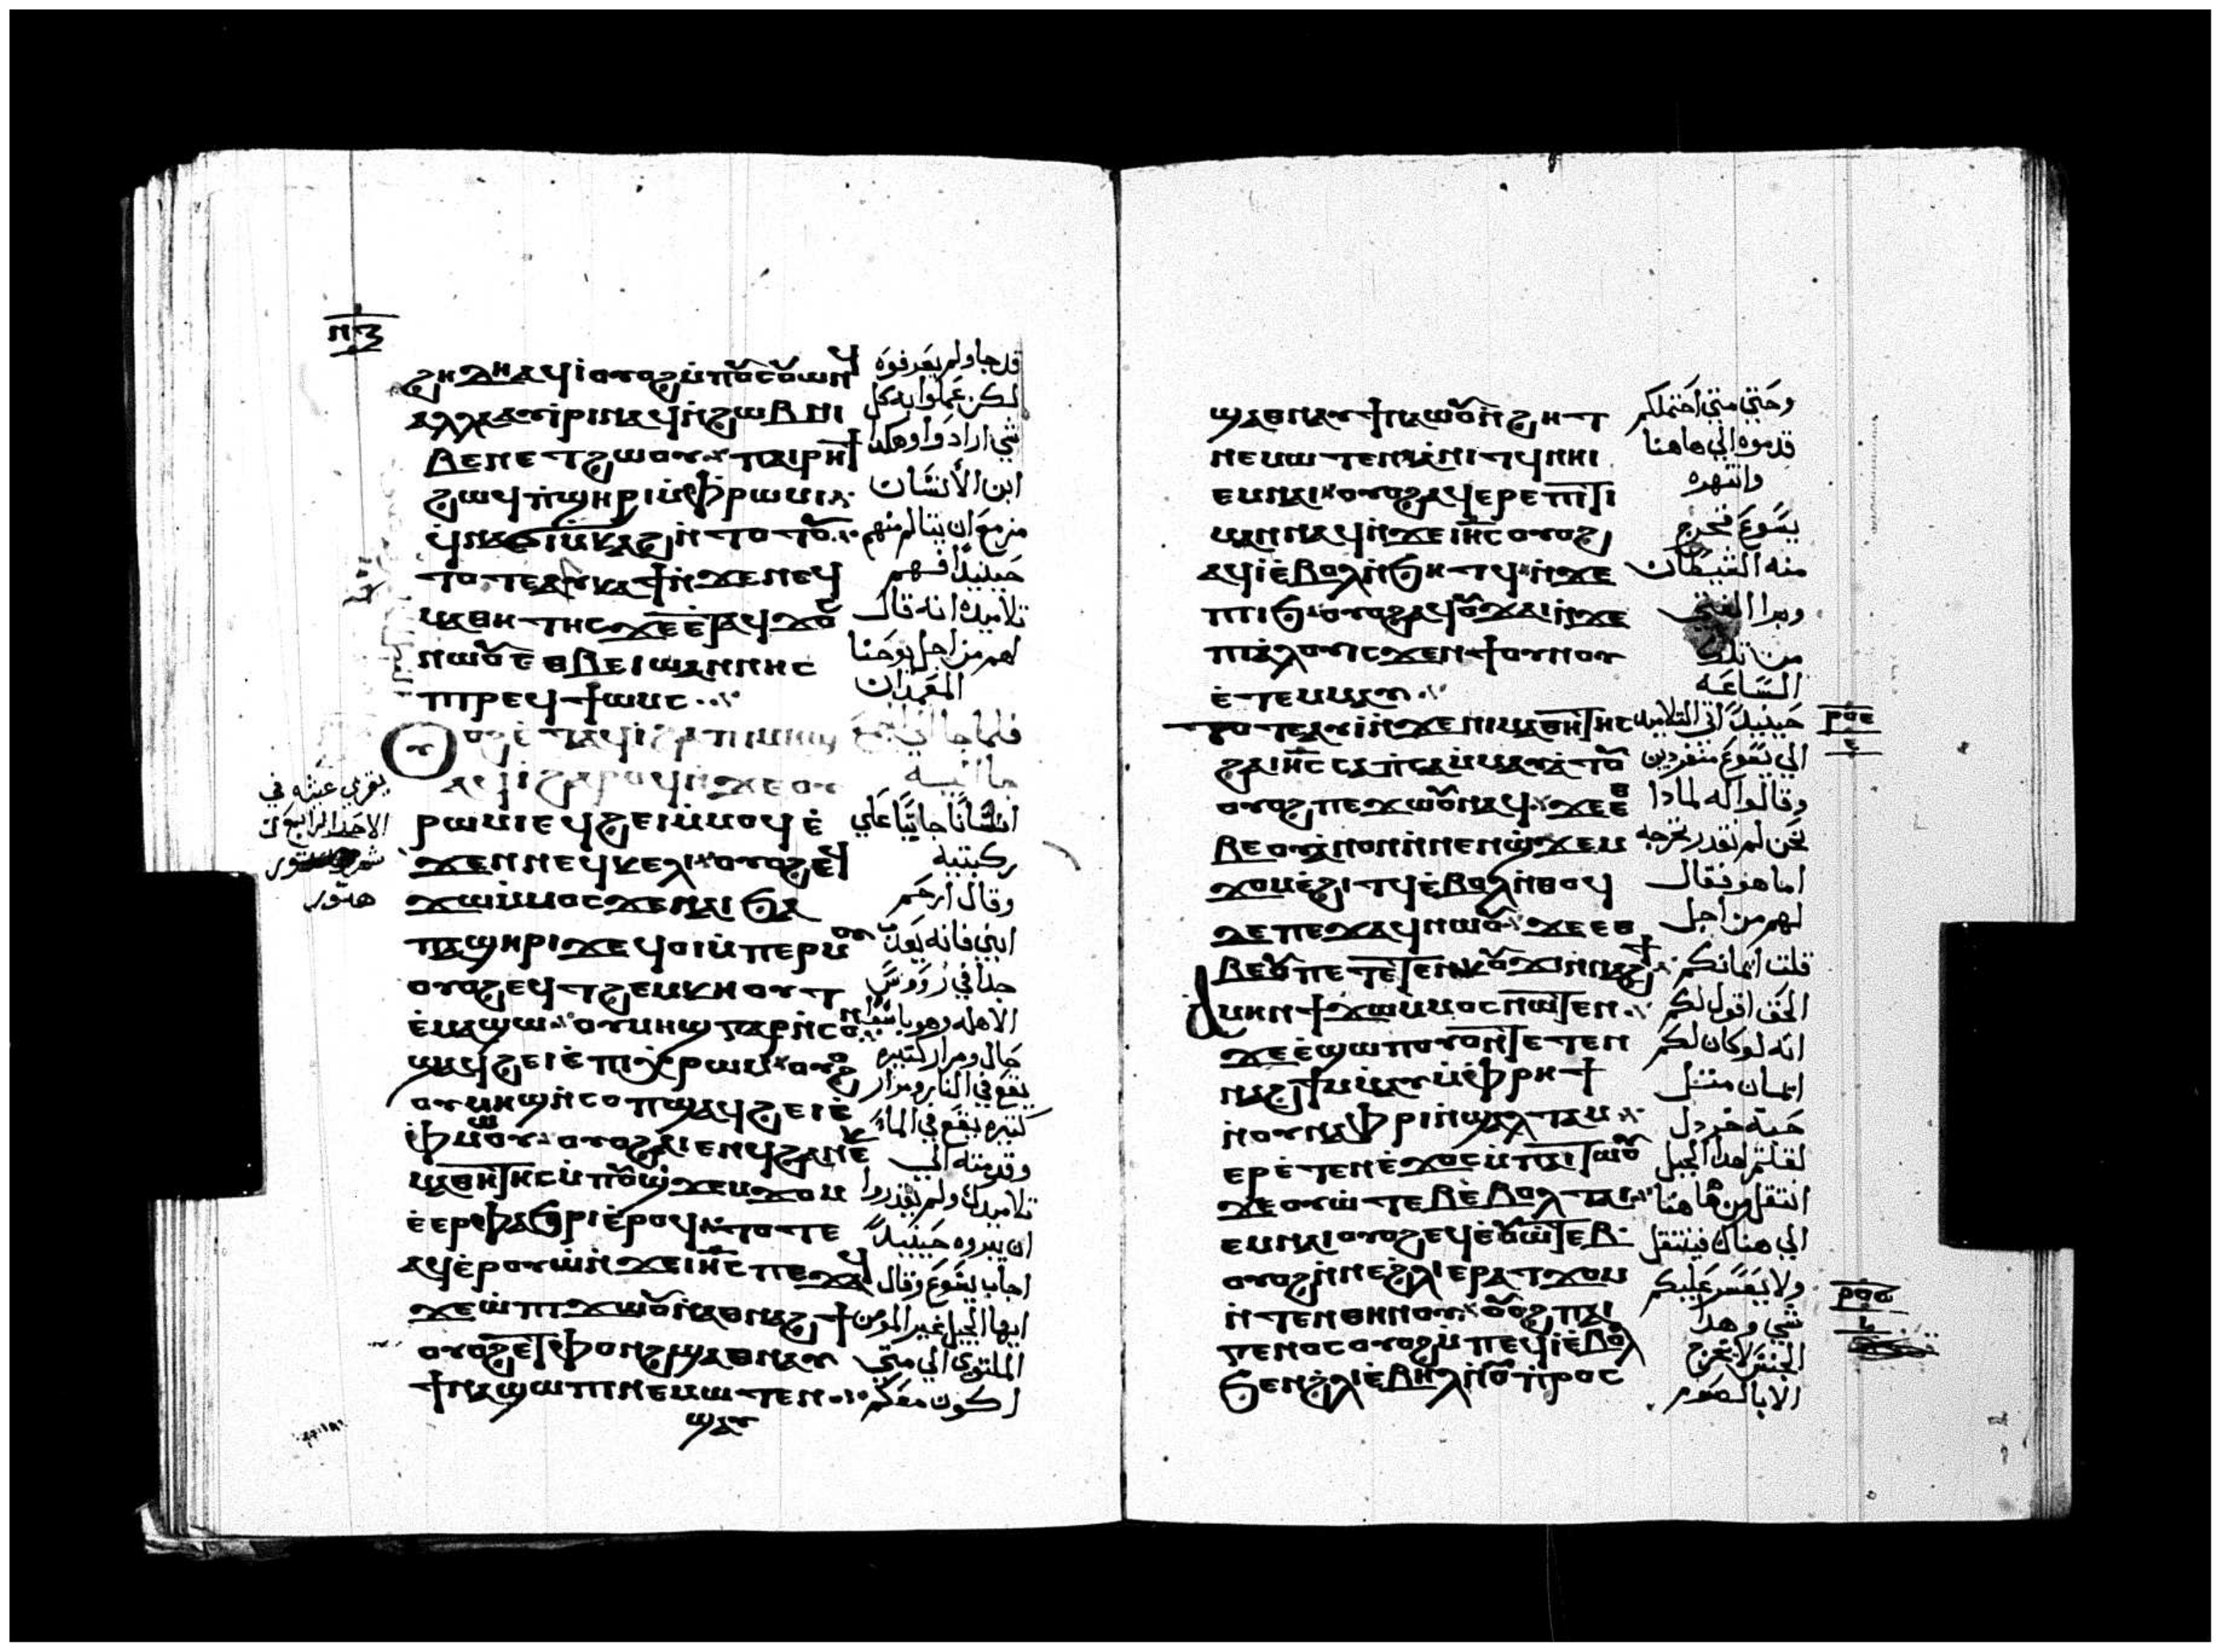 ⲛⲍ
ϩⲏⲇⲏ ⲁϥⲓ̀ ⲟⲩⲟϩ ⲙ̀ⲡⲟⲩⲥⲟⲩⲱⲛϥ
ⲁⲗⲗⲁ ⲁⲩⲓ̀ⲣⲓ ⲛⲁϥ ⲛ̀ϩⲱⲃ ⲛⲓ
ⲃⲉⲛ ⲉⲧϩⲱⲟⲩ ⲡⲁⲓⲣⲏϯ
ϩⲱϥ ⲡ̀ϣⲏⲣⲓ ⲙ̀ⲫⲣⲱⲙⲓ
ϥ̀ⲛⲁϭⲓⲙ̀ⲕⲁϩ ⲛ̀ⲧⲟⲧⲟⲩ
ⲧⲟⲧⲉ ⲁⲩⲕⲁϯ ⲛ̀ϫⲉ ⲛⲉϥ
ⲙⲁⲑⲏⲧⲏⲥ ϫⲉ ⲉ̀ⲧⲁϥϫⲟ
ⲛⲱⲟⲩ ⲉⲑⲃⲉ ⲓⲱⲁⲛⲛⲏⲥ
ⲡⲓⲣⲉϥϯⲱⲙⲥ
ⲟⲩⲟϩ ⲉ̀ⲧⲁϥⲓ̀ ϩⲁ ⲡⲓⲙⲏϣ
ⲁϥⲓ̀ ϩⲁⲣⲟϥ ⲛ̀ϫⲉ ⲟⲩ
ⲣⲱⲙⲓ ⲉϥϩⲓⲙ̀ⲙⲟϥ ⲉ̀
ϫⲉⲛ ⲛⲉϥⲕⲉⲗⲓ ⲟⲩⲟϩ ⲉϥ
ϫⲱⲙ̀ⲙⲟⲥ ϫⲉ ⲛⲁⲓ ϧⲁ
ⲡⲁϣⲏⲣⲓ ϫⲉ ϥⲟⲓ ⲙ̀ⲡⲉⲣⲙⲟⲩ
ⲟⲩⲟϩ ⲉϥⲧϩⲉⲙⲕⲏⲟⲩⲧ
ⲉ̀ⲙⲁϣⲱ ⲟⲩⲙⲏϣ ⲅⲁⲣ ⲛ̀ⲥⲟⲡ
ϣⲁϥϩⲉⲓ ⲉ̀ⲡⲓⲭ̀ⲣⲱⲙ ⲟⲩⲟϩ
ⲟⲩⲙⲏϣ ⲛ̀ⲥⲟⲡ ϣⲁϥϩⲉⲓ ⲉ̀
ⲫ̀ⲙⲱⲟⲩ ⲟⲩⲟϩ ⲁⲓⲉⲛϥ ϩⲁ ⲛⲉⲕ
ⲙⲁⲑⲏⲧⲏⲥ ⲙ̀ⲡⲟⲩϣ̀ϫⲉⲙϫⲟⲙ
ⲉ̀ⲉⲣⲫⲁϧⲣⲓ ⲉ̀ⲣⲟϥ ⲧⲟⲧⲉ
ⲁϥⲉ̀ⲣⲟⲩⲱ̀ ⲛ̀ϫⲉ ⲓⲏⲥ ⲡⲉϫⲁϥ
ϫⲉ ⲱ̀ ⲡⲓϫⲱⲟⲩ ⲛ̀ⲁⲑⲛⲁϩϯ
ⲟⲩⲟϩ ⲉ̀ⲧⲫⲟⲛϩ ϣⲁ ⲑⲛⲁⲩ
ϯⲛⲁϣⲱⲡⲓ ⲛⲉⲙⲱⲧⲉⲛ
ϣⲁ
قد جا ولم يعرفوه
لكن عملوا به كل
شي ارادوا وهكذا
ابن الأنسان
مزمع ان يتالم منهم
حينيدٍ افهم
تلاميده انه قال
لهم من اجل يوحنا
المعمدان
فلما جا الي الجمع
جا اليه
انسانًا جاثيًا علي
ركبتيه
وقال ارحم
ابني فانه يعدب
جدا في رووس
الاهله
جال ومرار كتيره
يقع في النار ومرار
كتيره يقع في الماء
وقدمته الي
تلاميدك ولم يقدروا
ان يبروه حينيدٍ
اجاب يسوع وقال
ايها الجيل غير المومن
الملتوي الي متي
اكون معكم
يقري عشيه في
الاحد الرابع من
شهر
هتور
ϣⲁ ⲑⲛⲁⲩ ϯⲛⲁⲱⲟⲩⲛ̀ϩⲏⲧ
ⲛⲉⲙⲱⲧⲉⲛ ⲁ̀ⲛⲓⲧϥ ⲛⲏⲓ
ⲉⲙⲛⲁⲓ ⲟⲩⲟϩ ⲁϥⲉⲣⲉⲡⲓⲧⲓ
ⲙⲁⲛ ⲛⲁϥ ⲛ̀ϫⲉ ⲓⲏⲥ ⲟⲩⲟϩ
ⲁϥⲓ̀ ⲉ̀ⲃⲟⲗ ⲛ̀ϧⲏⲧϥ ⲛ̀ϫⲉ
ⲡⲓⲓϧ ⲟⲩⲟϩ ⲁϥⲟⲩϫⲁⲓ ⲛ̀ϫⲉ
ⲡⲓⲁ̀ⲗⲟⲩ ⲓⲥϫⲉⲛ ϯⲟⲩⲛⲟⲩ
ⲉ̀ⲧⲉⲙⲙⲁⲩ
ⲧⲟⲧⲉ ⲁⲩⲓ̀ ⲛ̀ϫⲉ ⲛⲓⲙⲁⲑⲏⲧⲏⲥ
ϩⲁ ⲓⲏⲥ ⲥⲁⲡ̀ⲥⲁ ⲙ̀ⲙⲁⲩⲁ̀ⲧⲟⲩ
ⲟⲩⲟϩ ⲡⲉϫⲱⲟⲩ ⲛⲁϥ ϫⲉ ⲉⲑ
ⲃⲉ ⲟⲩ ⲁ̀ⲛⲟⲛ ⲙ̀ⲡⲉⲛϣ̀ϫⲉⲙ
ϫⲟⲙ ⲉ̀ϩⲓⲧϥ ⲉ̀ⲃⲟⲗ ⲛ̀ⲑⲟϥ
ⲇⲉ ⲡⲉϫⲁϥ ⲛⲱⲟⲩ ϫⲉ ⲉⲑ
ⲃⲉ ⲟⲩ ⲡⲉⲧⲉⲧⲉⲛⲕⲟⲩϫⲓ ⲛ̀ⲛⲁϩϯ
ⲁⲙⲏⲛ ϯϫⲱⲙ̀ⲙⲟⲥ ⲛⲱⲧⲉⲛ
ϫⲉ ⲉ̀ϣⲱⲡ ⲟⲩⲟⲛⲧⲉⲧⲉⲛ
ⲛⲁϩϯ ⲙ̀ⲙⲁⲩ ⲙ̀ⲫⲣⲏϯ
ⲛ̀ⲟⲩⲛⲁⲫⲣⲓ ⲛ̀ϣⲁⲗⲧⲁⲙ
ⲉⲣⲉ̀ⲧⲉⲛⲉ̀ϫⲟⲥ ⲙ̀ⲡⲁⲓⲧⲱⲟⲩ
ϫⲉ ⲟⲩⲱ̀ⲧⲉⲃ ⲉ̀ⲃⲟⲗ ⲧⲁⲓ
ⲉⲙⲛⲁⲓ ⲟⲩⲟϩ ⲉϥⲉ̀ⲟⲩⲱ̀ⲧⲉⲃ
ⲟⲩⲟϩ ⲛ̀ⲛⲉϩ̀ⲗⲓ ⲉⲣⲁⲧϫⲟⲙ
ⲛ̀ⲧⲉⲛ ⲑⲏⲛⲟⲩ ⲟⲩⲟϩ ⲡⲁⲓ
ⲅⲉⲛⲟⲥ ⲟⲩⲟϩ ⲙ̀ⲡⲉϥⲓ̀ ⲉ̀ⲃⲟⲗ
ϧⲉⲛ ϩ̀ⲗⲓ ⲉ̀ⲃⲏⲗ ⲛ̀ⲟⲩⲡⲣⲟⲥ
وحتي متي احتملكم
قدموه الي هاهنا
وانتهره
يسوع فخرج
منه الشيطان
وبرا الفتي
من تلك
الساعه
حينيدٍ اتي التلاميد
الي يسوع منفردين
وقالوا له لمادا
نحن لم نقدر نخرجه
اما هو فقال
لهم من اجل
قلت ايمانكم
الحق اقول لكم
انه لو كان لكم
ايمان متل
حبه خردل
لقلتم لهدا الجبل
انتقل من هاهنا
الي هناك فينتقل
ولا يعسر عليكم
شي وهدا
الجنس لا يخرج
الا بالصوم
ⲣⲟⲉ
ⲣⲟⲋ